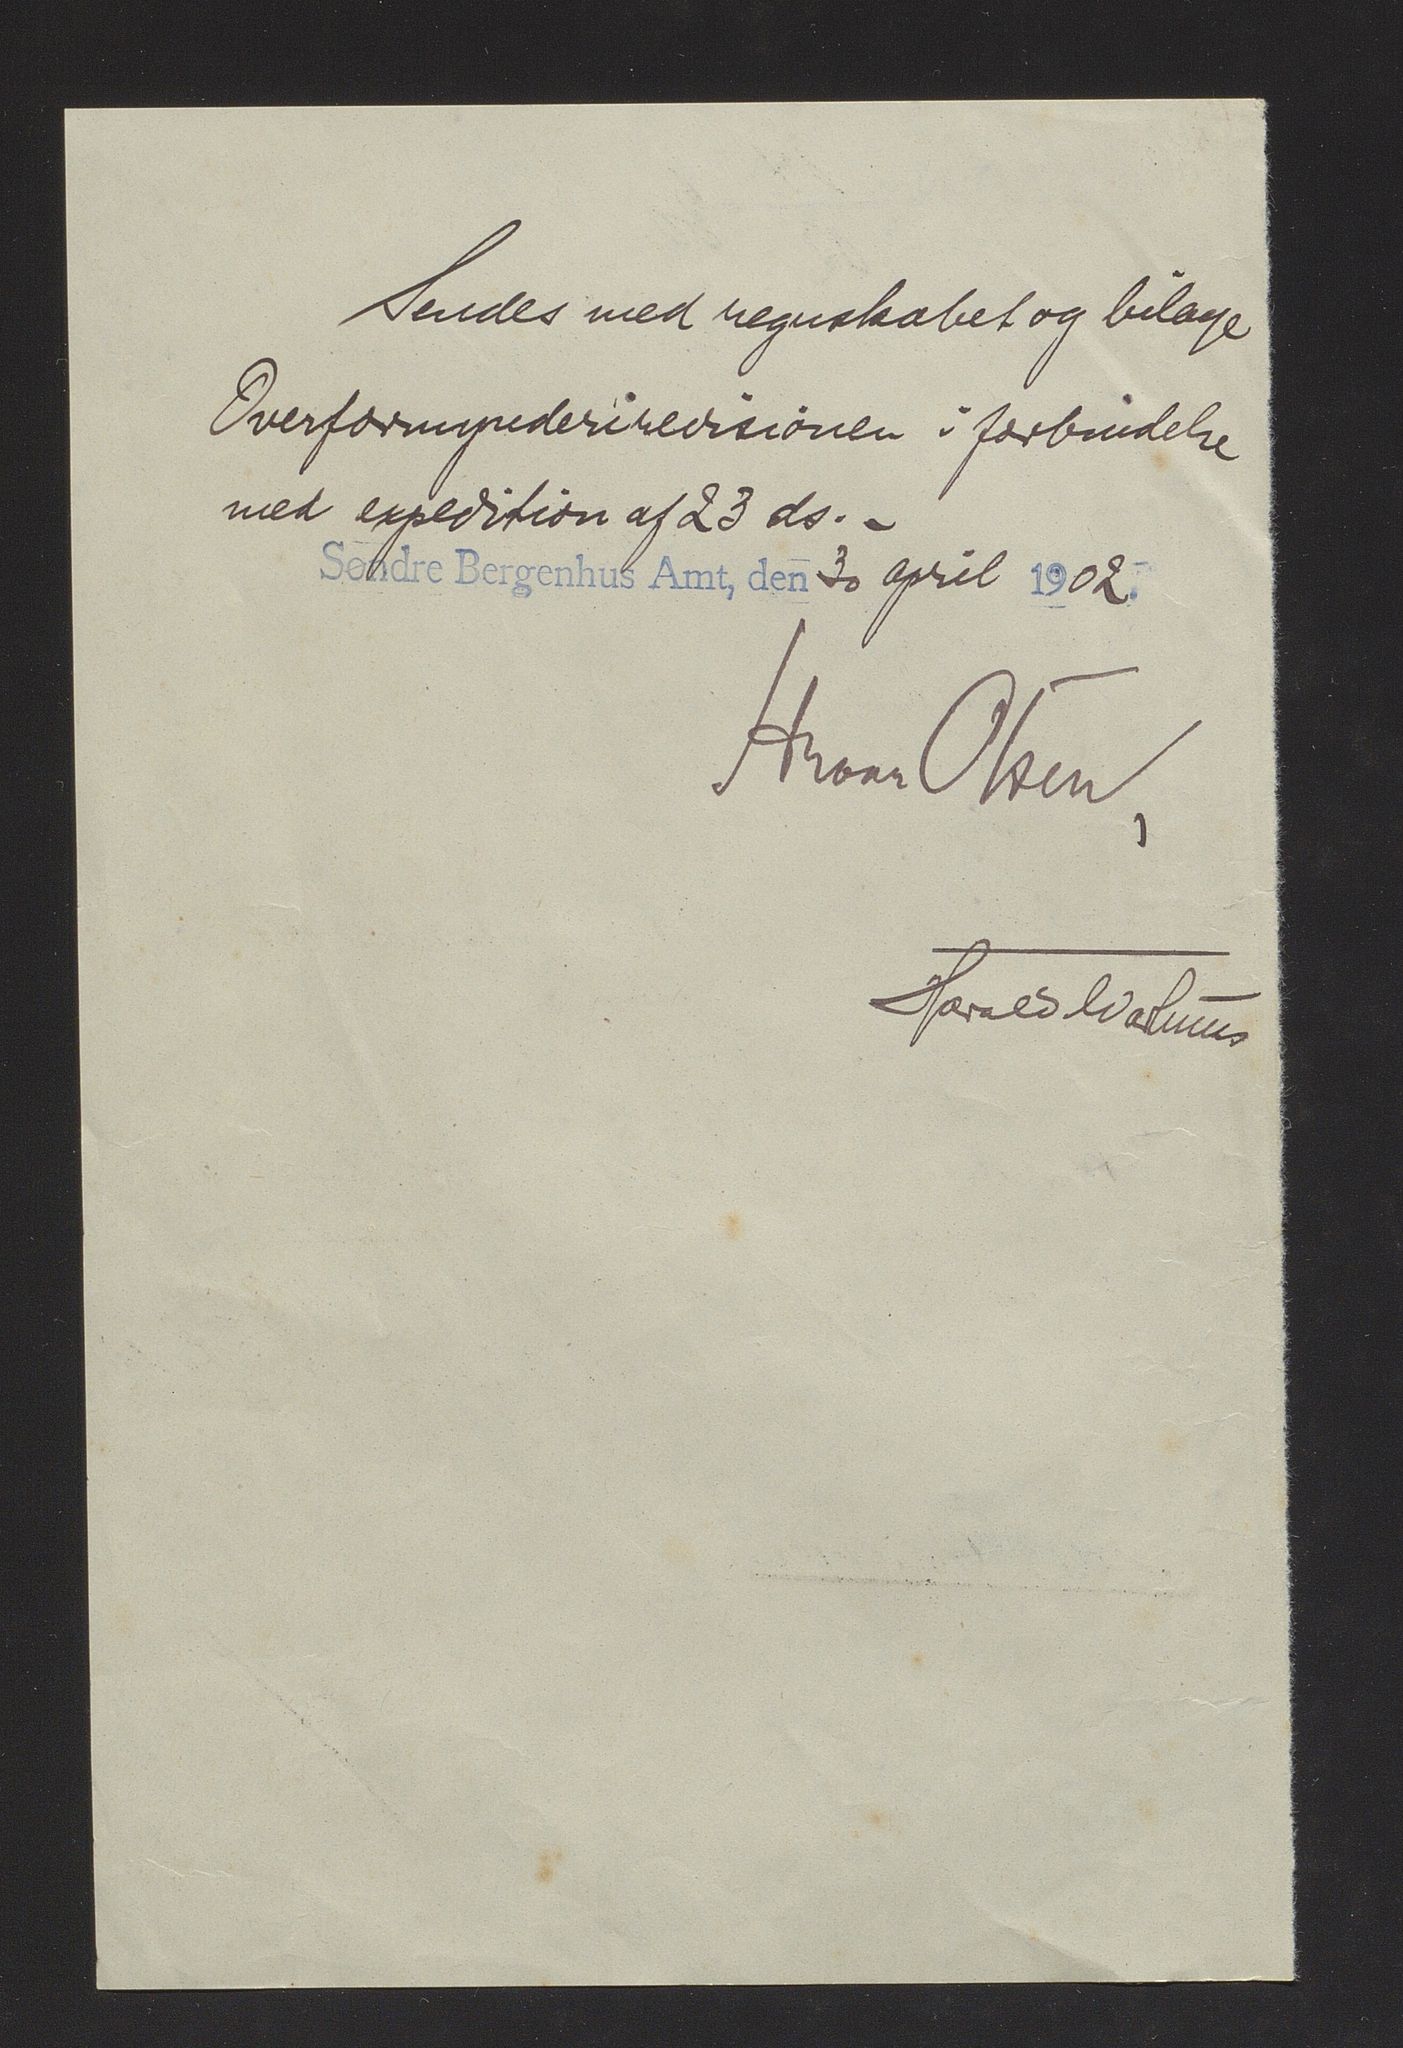 Sendes med regnskabet og bilage
Overformynderirevisionen i forbindelse
med expedition af 23 ds. -
Søndre Bergenhus Amt, den 30 april 1902.
Hroar Olsen,
Harald